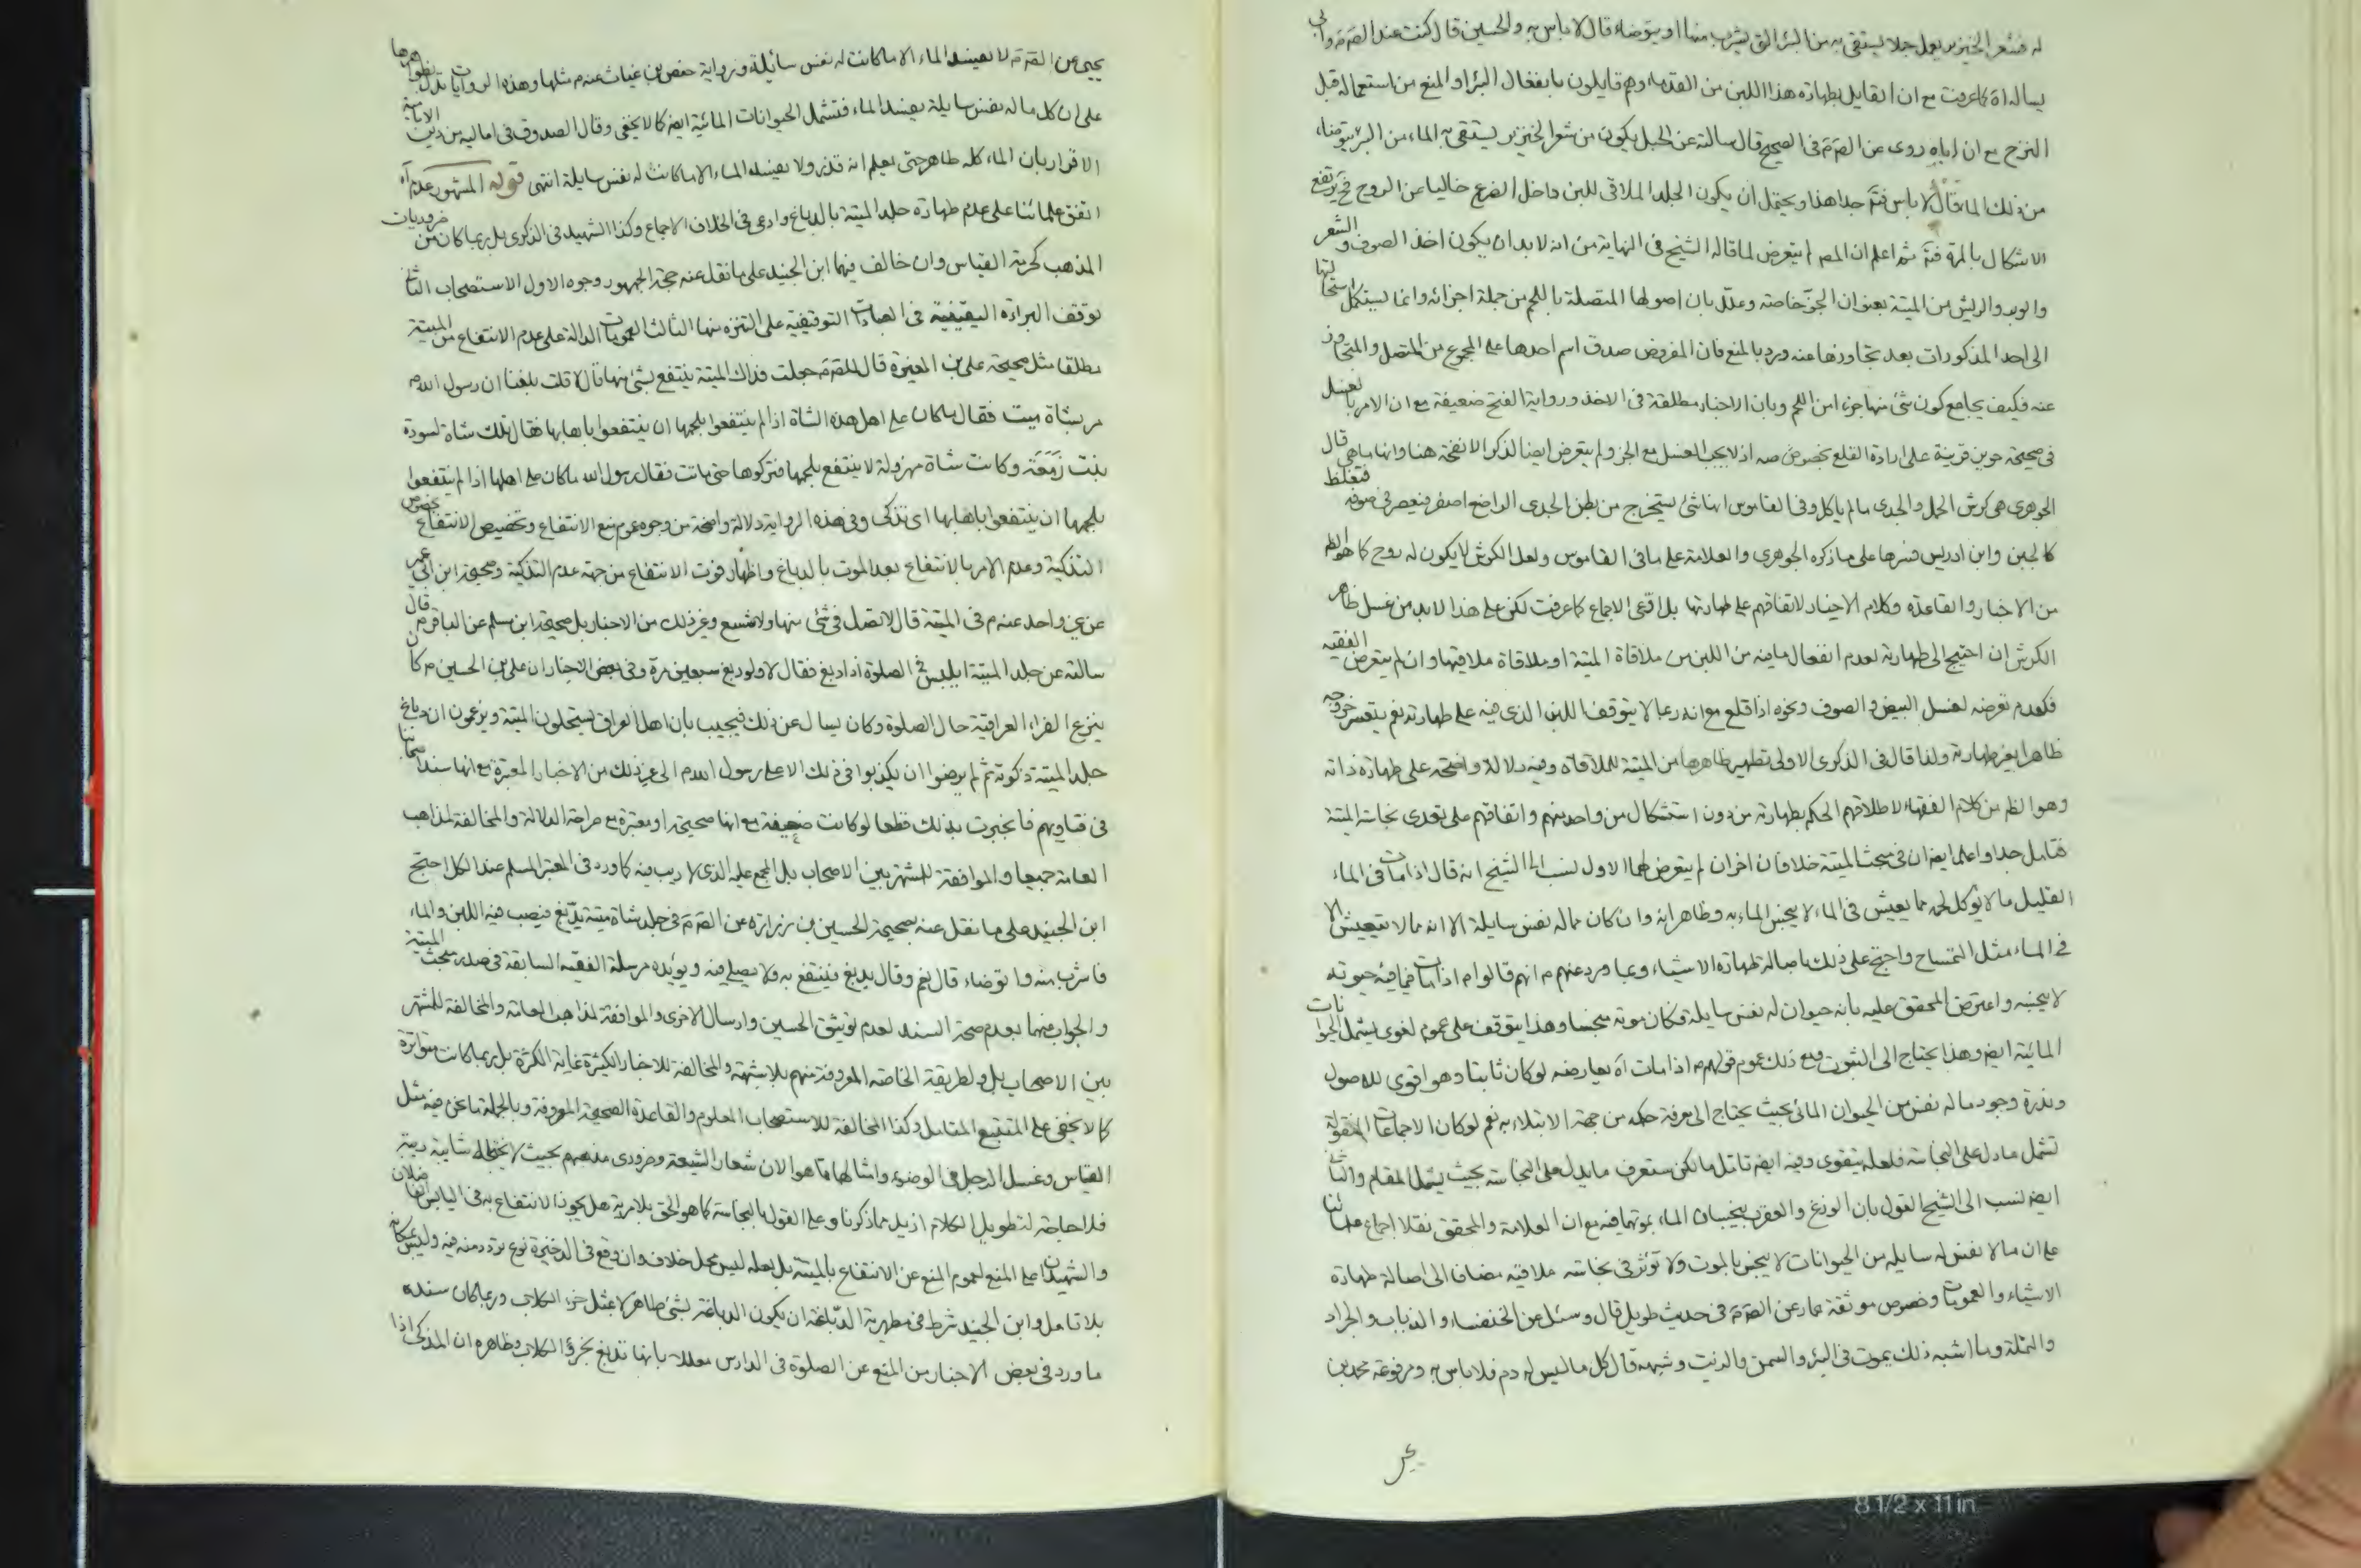 له فشعر الخنزير يعمل حبلا يستقى به من البئر التى يشرب منها او يتوضاء قال لا باس به والحسين قال كنت عند الص‍ وابى
يساله اه كما عرفت مع ان القايل بطهارة هذا اللبن من القدماء وهم قايلون بانفعال البئر او المنع من استعماله قبل
النزح مع ان اباه روى عن الص‍ فى الصحيح قال سالته عن الحبل يكون من شعر الخنزير يستقى به الماء من البئر يتوضاء
من ذلك الماء قال لا باس فتم جدا هذا ويحتمل ان يكون الجلد الملاقى للبن داخل الضرع خاليا عن الروح فح يرتفع
الاشكال بالمرة فتم ثم اعلم ان المص لم يتعرض لما قاله الشيخ فى النهاية من انه لا بد ان يكون اخذ الصوف والشعر
والوبر والريش من الميتة بعنوان الجز خاصة وعلل بان اصولها المتصلة باللحم من جملة اجزائه وانما يستكمل استحالتها
الى احد المذكورات بعد تجاوزها عنه ورد بالمنع فان المفروض صدق اسم احدها على المجموع من المتصل والمتجاوز
عنه فكيف يجامع كون شئ منها جزء من اللحم وبان الاخبار مطلقة فى الاخذ ورواية الفتح ضعيفة مع ان الامر بالغسل
فى صحيحة حريز قرينة على ارادة القلع بخصوصه اذ لا يجب الغسل مع الجز ولم يتعرض ايضا لذكر الانفحة هنا وانها ما هى قال
الجوهرى هى كرش الحمل والجدى ما لم ياكل وفى القاموس انها شئ يستخرج من بطن الجدى الراضع اصفر فيعصر فى صوفه فتغلظ
كالجبن وابن ادريس فسرها على ما ذكره الجوهرى والعلامة على ما فى القاموس ولعل الكرش لا يكون له روح كما هو الظ
من الاخبار والقاعدة وكلام الاخيار لاتفاقهم على طهارتها بل ادعى الاجماع كما عرفت لكن على هذا لا بد من غسل ظاهر
الكرش ان احتيج الى طهارته لعدم انفعال ما فيه من اللبن من ملاقاة الميتة او ملاقاة ملاقيها وان لم يتعرض الفقيه
فكعدم تعرضه لغسل البيض والصوف ونحوه اذا قلع مع انه ربما لا يتوقف اللبن الذى فيه على طهارته نعم يتعسر خروجه
ظاهرا بغير طهارته ولذا قال فى الذكرى الاولى تطهير ظاهرها من الميتة للملاقاة وفيه دلالة واضحة على طهارة ذاته
وهو الظ من كلام الفقهاء لاطلاقهم الحكم بطهارته من دون استشكال من واحد منهم واتفاقهم على تعدى نجاسة الميتة
فتامل جدا واعلم ايضا ان فى مبحث الميتة خلافان اخران لم يتعرض لهما الاول نسب الى الشيخ انه قال اذا مات فى الماء
القليل ما لا يؤكل لحمه مما يعيش فى الماء لا ينجس الماء به وظاهر انه وان كان مما له نفس سايلة الا انه مما لا يتعيش الا
فى الماء مثل التمساح واحتج على ذلك باصالة طهارة الاشياء وبما ورد عنهم م انهم قالوا م اذا مات فيما فيه حيوته
لا ينجسه واعترض المحقق عليه بانه حيوان له نفس سايلة فكان موته منجسا وهذا يتوقف على عموم لغوى يشمل الحيوانات
المائية ايضا وهذا يحتاج الى الثبوت ومع ذلك عموم قولهم م اذا مات اه يعارضه لو كان ثابتا وهو اقوى للاصول
وندرة وجود ما له نفس من الحيوان المائى بحيث يحتاج الى معرفة حكمه من جهة الابتلاء به نعم لو كان الاجماعات المنقولة
تشمل ما دل على النجاسة فلعله يتقوى وفيه ايضا تامل ما لكن ستعرف ما يدل على النجاسة بحيث يشمل المقام والثانى
ايضا نسب الى الشيخ القول بان الوزغ والعقرب ينجسان الماء بموتهما فيه مع ان العلامة والمحقق نقلا اجماع علمائنا
على ان ما لا نفس له سايلة من الحيوانات لا ينجس بالموت ولا تؤثر فى نجاسة ملاقيه مضافا الى اصالة طهارة
الاشياء والعمومات وخصوص موثقة عمار عن الص‍ فى حديث طويل قال وسئل عن الخنفساء والذباب والجراد
والنملة وما اشبه ذلك يموت فى البئر والسمن والزيت وشبهه قال كل ما ليس له دم فلا باس به ومرفوعة محمد بن
يحيى عن الص‍ لا يفسد الماء الا ما كانت له نفس سائلة ورواية حفص بن غياث عنه م مثلها وهذه الروايات تدل بظواهرها
على ان كل ما له نفس سايلة يفسد الماء فتشمل الحيوانات المائية ايضا كما لا يخفى وقال الصدوق فى اماليه من دين الامامية
الاقرار بان الماء كله طاهر حتى يعلم انه قذر ولا يفسد الماء الا ما كانت له نفس سايلة انتهى قوله المشهور عدم اه
اتفق علمائنا على عدم طهارة جلد الميتة بالدباغ وادعى فى الخلاف الاجماع وكذا الشهيد فى الذكرى بل ربما كان من ضروريات
المذهب كحرمة القياس وان خالف فيها ابن الجنيد على ما نقل عنه حجة الجمهور وجوه الاول الاستصحاب الثانى
توقف البراءة اليقينية فى العبادات التوقيفية على التنزه منها الثالث العمومات الدالة على عدم الانتفاع من الميتة
مطلقا مثل صحيحة على بن المغيرة قال للص‍ جعلت فداك الميتة ينتفع بشئ منها قال لا قلت بلغنا ان رسول الله ص
مر بشاة ميت فقال ما كان على اهل هذه الشاة اذا لم ينتفعوا بلحمها ان ينتفعوا باهابها فقال تلك شاة لسودة
بنت زَمَعَة وكانت شاة مهزولة لا ينتفع بلحمها فتركوها حتى ماتت فقال رسول الله ما كان على اهلها اذا لم ينتفعوا
بلحمها ان ينتفعوا باهابها اى تذكى وفى هذه الرواية دلالة واضحة من وجوه عموم منع الانتفاع وتخصيص الانتفاع بخصوص
التذكية وعدم الامر بالانتفاع بعد الموت بالدباغ واظهار فوت الانتفاع من جهة عدم التذكية وصحيحة ابن ابى عمير
عن غير واحد عنه م فى الميتة قال لا تصل فى شئ منها ولا شسع وغير ذلك من الاخبار بل صحيحة ابن مسلم عن الباقر م قال
سالته عن جلد الميتة ايلبس فى الصلوة اذا دبغ فقال لا ولو دبغ سبعين مرة وفى بعض الاخبار ان على بن الحسين م كان
ينزع الفراء العراقية حال الصلوة وكان يسال عن ذلك فيجيب بان اهل العراق يستحلون الميتة ويزعمون ان دباغ
جلد الميتة ذكوته ثم لم يرضوا ان يكذبوا فى ذلك الا على رسول الله م الى غير ذلك من الاخبار المعتبرة مع انها سند اصحابنا
فى فتاويهم فانجبرت بذلك قطعا لو كانت ضعيفة مع انها صحيحة او معتبرة مع صراحة الدلالة والمخالفة لمذاهب
العامة جميعا والموافقة للشهرة بين الاصحاب بل المجمع عليه الذى لا ريب فيه كما ورد فى المعتبر المسلم عند الكل احتج
ابن الجنيد على ما نقل عنه بصحيحة الحسين بن زرارة عن الص‍ فى جلد شاة ميتة يدبغ فيصب فيه اللبن والماء
فاشرب منه واتوضاء قال نعم وقال يدبغ فينتفع به ولا يصلى فيه ويؤيده مرسلة الفقيه السابقة فى صدر مبحث الميتة
والجواب منهما بعدم صحة السند لعدم توثيق الحسين وارسال الاخرى والموافقة لمذاهب العامة والمخالفة للمشتهر
بين الاصحاب بل ولطريقة الخاصة المعروفة منهم بلا شبهة والمخالفة للاخبار الكثيرة غاية الكثرة بل ربما كانت متواترة
كما لا يخفى على المتتبع المتامل وكذا المخالفة للاستصحاب المعلوم والقاعدة الصحيحة المعروفة وبالجملة ما نحن فيه مثل
القياس وغسل الرجل فى الوضوء وامثالهما مما هو الان شعار الشيعة وضرورى مذهبهم بحيث لا يخفى شايبة ريبة
فلا حاجة لتطويل الكلام ازيد مما ذكرنا وعلى القول بالنجاسة كما هو الحق بلا مرية هل يجوز الانتفاع به فى اليابس الفاضلان
والشهيدان على المنع لعموم المنع عن الانتفاع بالميتة بل لعله ليس محل خلاف وان وقع فى الذخيرة نوع تردد منه فيه وليس مكانه
بلا تامل وابن الجنيد شرط فى مطهرية الدباغة ان يكون الدباغة بشئ طاهر لا مثل خرء الكلاب وربما كان سنده
ما ورد فى بعض الاخبار من المنع عن الصلوة فى الدارس معللا بانها تدبغ بخرؤ الكلاب وظاهره ان المذكى اذا